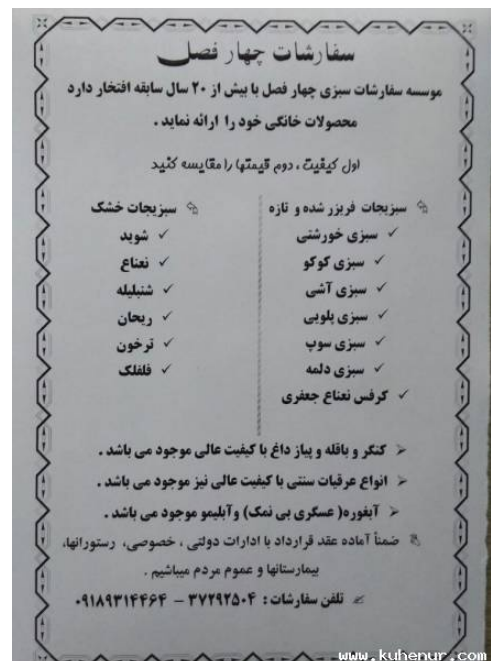 سفارشات چهار فصل
موسسه سفارشات سبزی چهار فصل با بیش از ۲۰ سال سابقه افتخار دارد
محصولات خانگی خود را ارائه نماید .
اول کیفیت ، دوم قیمتها را مقایسه کنید
سبزیجات فریزر شده و تازه
✓ سبزی خورشتی
✓ سبزی کوکو
✓ سبزی آشی
✓ سبزی پلویی
✓ سبزی سوپ
✓ سبزی دلمه
✓ کرفس نعناع جعفری
سبزیجات خشک
✓ شوید
✓ نعناع
✓ شنبلیله
✓ ریحان
✓ ترخون
✓ فلفلک
کنگر و باقله و پیاز داغ با کیفیت عالی موجود می باشد .
انواع عرقیات سنتی با کیفیت عالی نیز موجود می باشد .
آبغوره( عسگری بی نمک) وآبلیمو موجود می باشد .
ضمناً آماده عقد قرارداد با ادارات دولتی ، خصوصی، رستورانها،
بیمارستانها و عموم مردم میباشیم .
تلفن سفارشات : ۳۷۲۹۲۵۰۴ – ۰۹۱۸۹۳۱۴۴۶۴
www.kuhenur.com